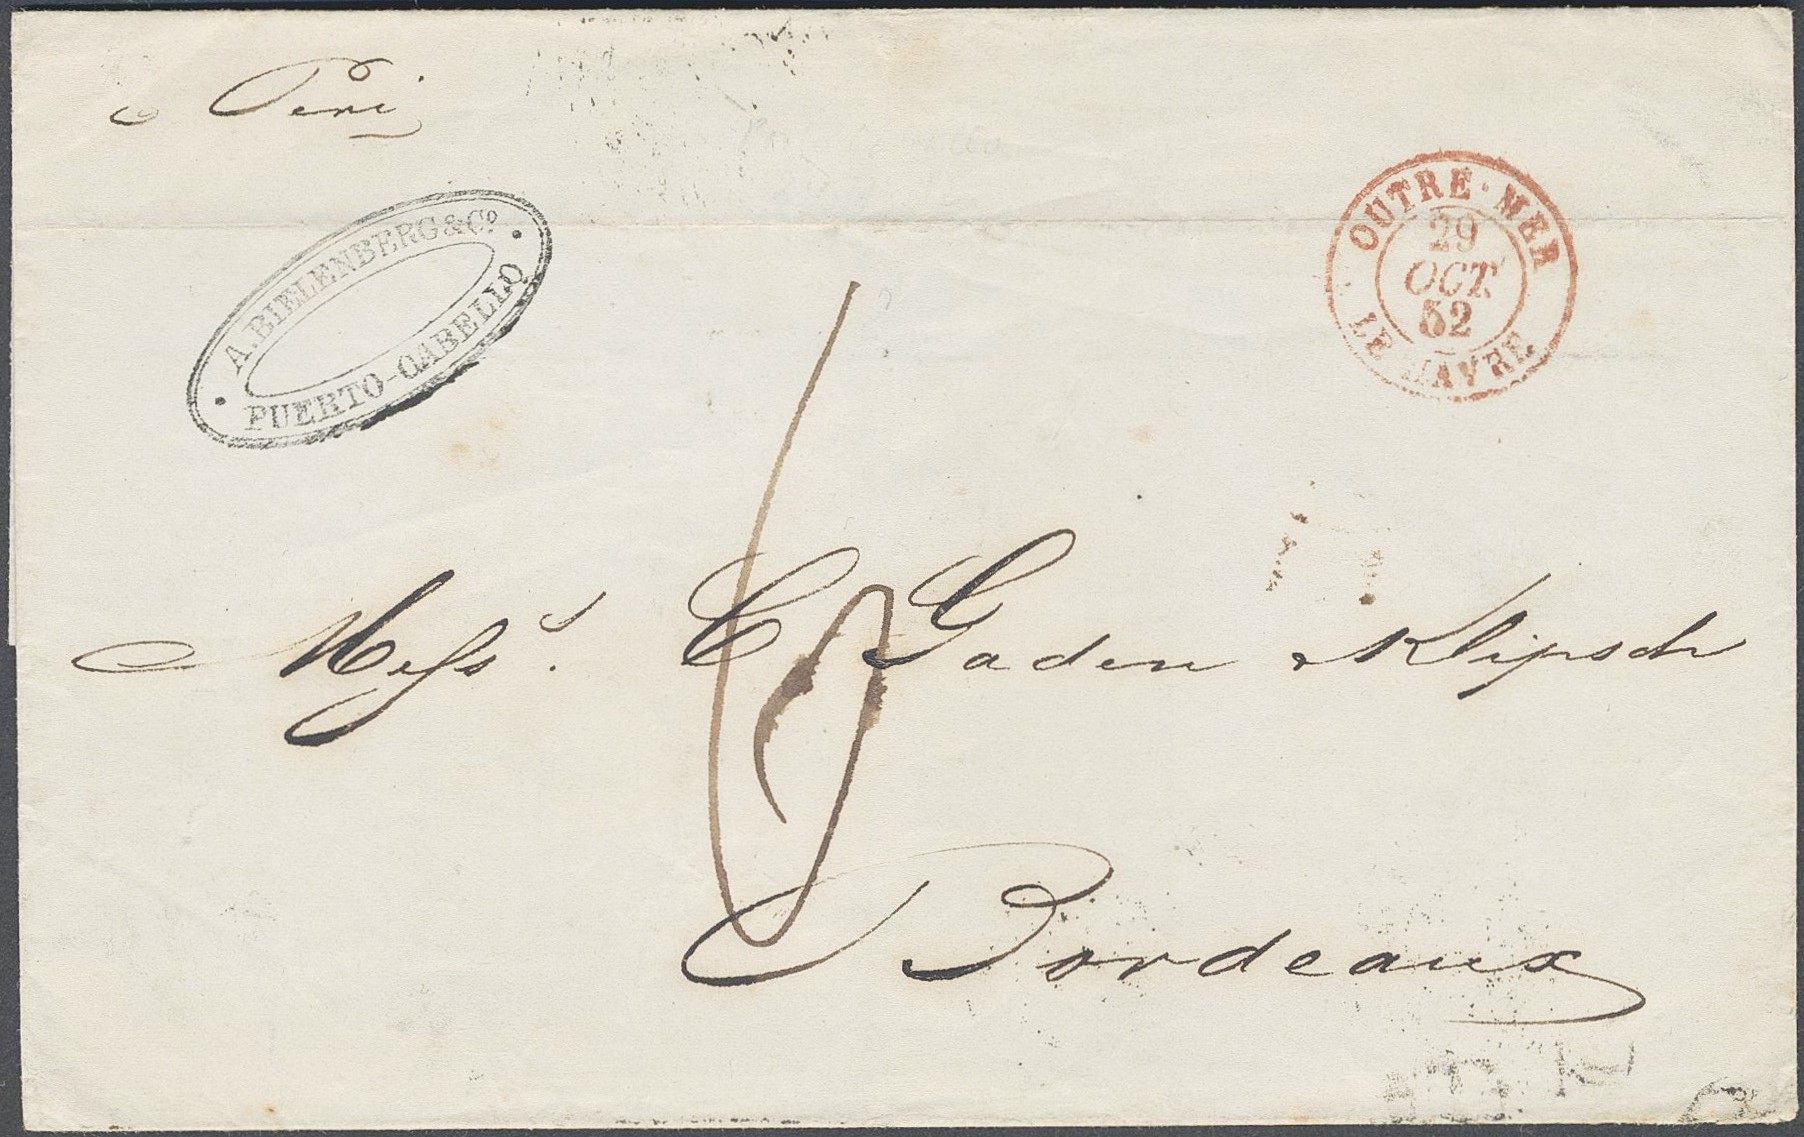 Peri
A. BIELENBERG & Cº
PUERTO-CABELLO
OUTRE-MER
29
OCT.
52
LE HAVRE
6
Messrs. C Gaden & Klipsch
Bordeaux